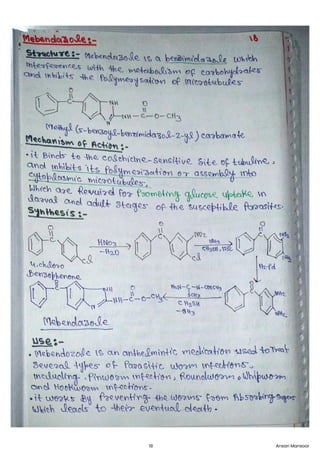 Mebendazole:-
18
Structure:- Mebendazole is a benzimidazole which
Interferences with the metabolism of carbohydrates
and inhibits the Polymerysation of microtubules
O
C
NH
O
NH-C-O-CH3
N
Methyl (5-benzoyl-benzimidazol-2-yl) carbamate
Mechanism of Action:-
• it Binds to the colchicine-sensitive site of tubuline,
and inhibits its Polymerization or assembly into
cytoplasmic microtubules,
Which are Required for Promoting glucose uptake in
larval and adult stages of the susceptible Parasites.
Synthesis:-
HNO3
-H2O
NO2
NH3
CH3OH, 
Cl
4.chloro
Benzophenone
H2-Pd
NH2
NH
NH-C-O-CH3
SCH3
CH3SH
-NH3
Mebendazole
Use:-
• Mebendozole is an anthelmintic medication used to Treat
Several types of Parasitic worm infections,
including. Pinworm infection, Roundworm, Whipworm
and Hookworm infections.
• it works By Preventing the worms from Absorbing Sugars
Which leads to their eventual death.
18
Ansari Mansoor